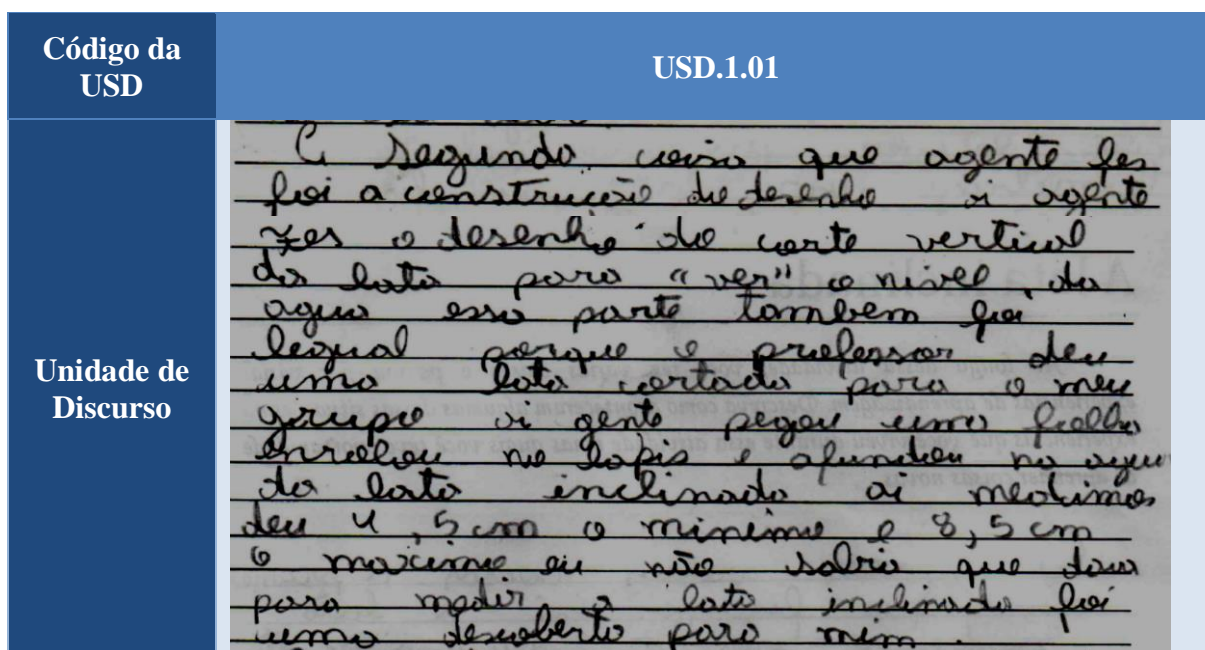 Código da
USD
USD.1.01
Unidade de
Discurso
A Segunda coisa que agente fes
foi a construção do desenho ai agente
fes o desenho do corte vertical
da lata para "ver" o nivel da
agua essa parte tambem foi
legual porque o professor deu
uma lata cortada para o meu
grupo ai gente pegou uma folha
enrolou no lapis e afundou na agua
da lata inclinada ai medimos
deu 4,5 cm o minimo e 8,5 cm
o maximo eu não sabia que dava
para medir a lata inclinada foi
uma descoberta para mim.